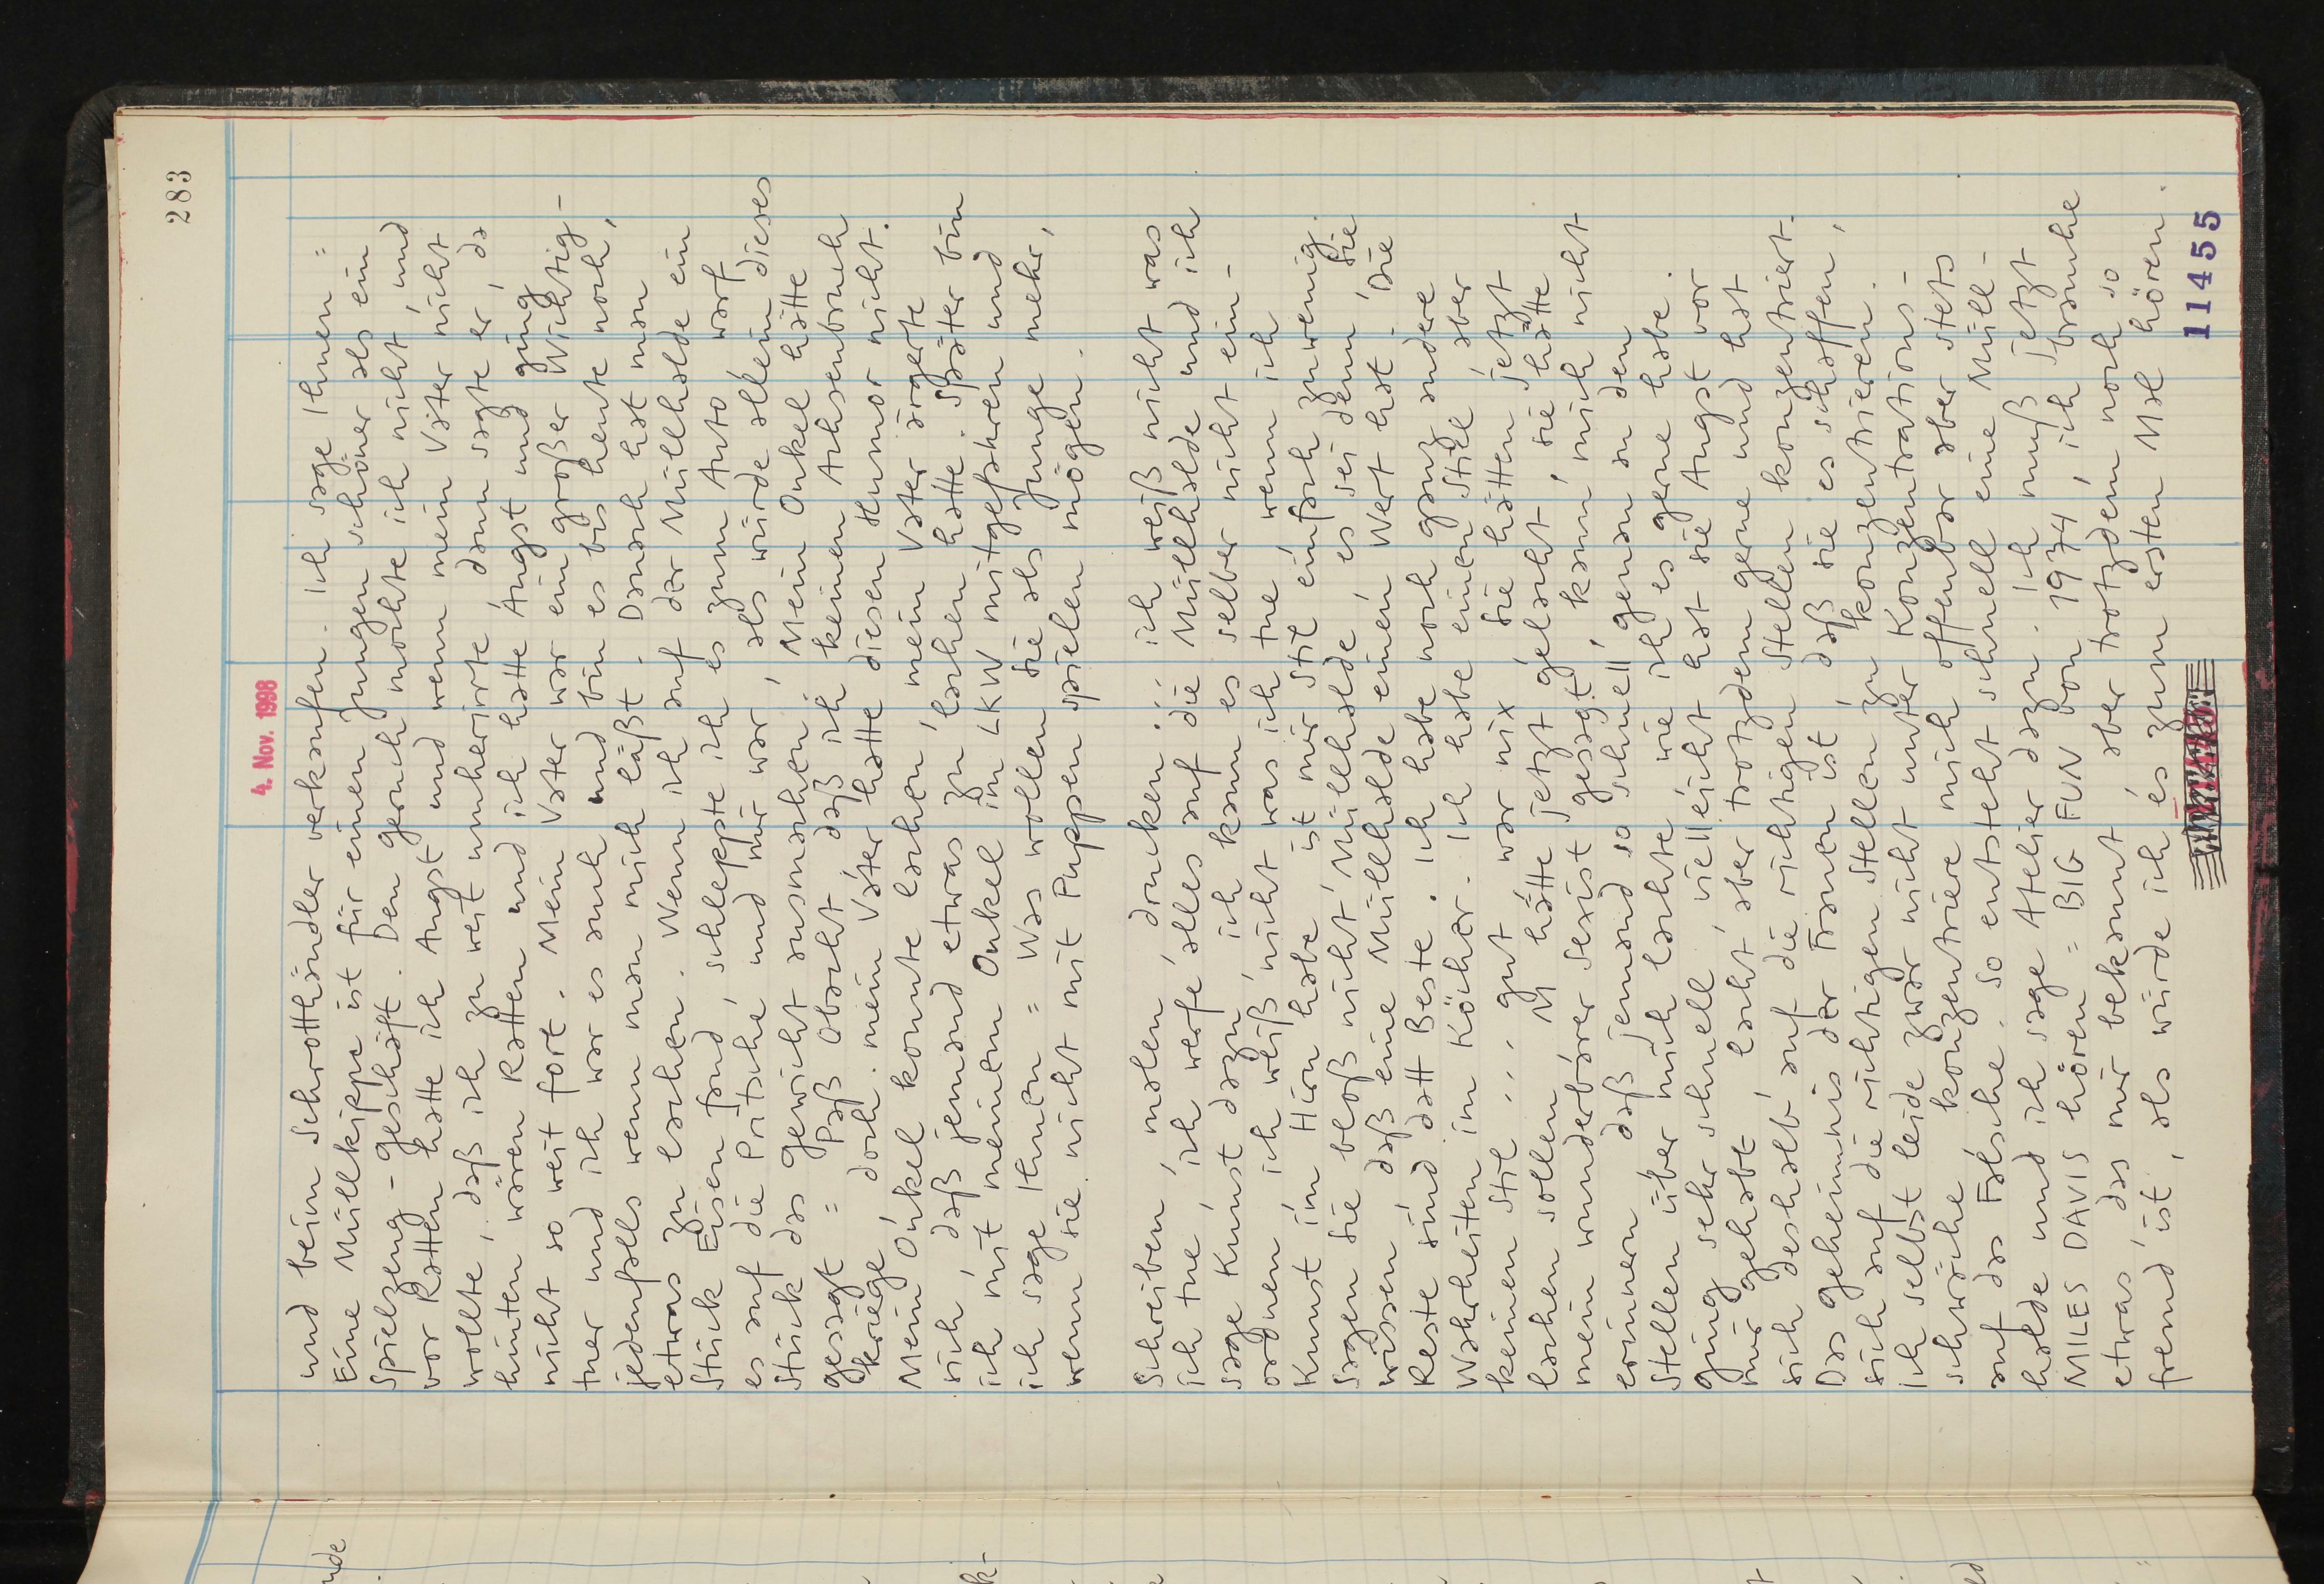 283
4. Nov. 1998
und beim Schrotthändler verkaufen. Ich sage Ihnen =
Eine Müllkippe ist für einen Jungen schöner als ein
Spielzeug-geschäft. Den geruch mochte ich nicht, und
vor Ratten hatte ich Angst und wenn mein Vater nicht
wollte, daß ich zu weit umherirrte, dann sagte er, da
hinten, wären Ratten und ich hatte Angst und ging
nicht so weit fort. Mein Vater war ein großer Wichtig-
tuer und ich war es auch und bin es bis heute noch,
jedenfalls wenn man mich läßt. Danach hat man
etwas zu lachen. Wenn ich auf der Müllhalde ein
Stück Eisen fand, schleppte ich es zum Auto, warf
es auf die Pritsche, und mir war, als würde allein dieses
Stück das gewicht ausmachen, Mein Onkel hätte
gesagt = Paß Obacht, daß ich keinen Achsenbruch
kriege, doch. mein Vater hatte diesen Humor nicht.
Mein Onkel konnte lachen, mein Vater ärgerte
sich, daß jemand etwas zu lachen hatte. Später bin
ich mit meinem Onkel im LKW mitgefahren und
ich sage Ihnen = Was wollen Sie als Junge mehr,
wenn sie nicht mit Puppen spielen mögen.
Schreiben, malen, drucken ... ich weiß nicht was
ich tue, ich werfe alles auf die Müllhalde und ich
sage Kunst dazu, ich kann es selber nicht ein-
ordnen, ich weiß nicht was ich tue, wenn ich
Kunst im Hirn habe, ist mir Stil einfach zuwenig.
Sagen Sie bloß nicht, Müllhalde, es sei denn, Sie
wissen, daß eine Müllhalde einen Wert hat. Die
Reste sind datt Beste. Ich habe noch ganz andere
Wahrheiten im Köcher. Ich habe einen Stil aber
keinen Stil ... gut, war nix. Sie hätten jetzt
lachen sollen. M hätte jetzt gelacht, sie hätte
mein wunderbarer Sexist gesagt, kann mich nicht
erinnern, daß jemand so schnell, genau an den
Stellen über mich lachte wie ich es gerne habe.
ging sehr schnell, vielleicht hat sie Angst vor
mir gehabt, lacht, aber trotzdem gerne und hat
sich deshalb, auf die richtigen Stellen konzentriert.
Das geheimnis der Frauen ist, daß sie es schaffen,
sich auf die richtigen Stellen zu konzentrieren.
Ich selbst leide zwar nicht unter Konzentrations-
schwäche, konzentriere mich offenbar aber stets
auf das Falsche. So entsteht schnell eine Müll-
halde und ich sage Atelier dazu. Ich muß jetzt
MILES DAVIS hören = BIG FUN von 1974, ich brauche
etwas, das mir bekannt, aber trotzdem noch so
fremd ist, als würde ich es zum ersten Mal hören.
11455